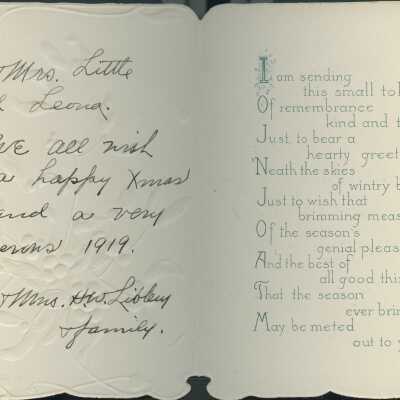 & Mrs. Little
& Leona.
We all wish
a happy Xmas
and a very
erous 1919.
& Mrs. H.W. Libbey
& family.
I am sending
this small tok
Of remembrance
kind and t
Just to bear a
hearty greet
'Neath the skies
of wintry b
Just to wish that
brimming meas
Of the season's
genial pleas
And the best of
all good thi
That the season
ever brin
May be meted
out to y